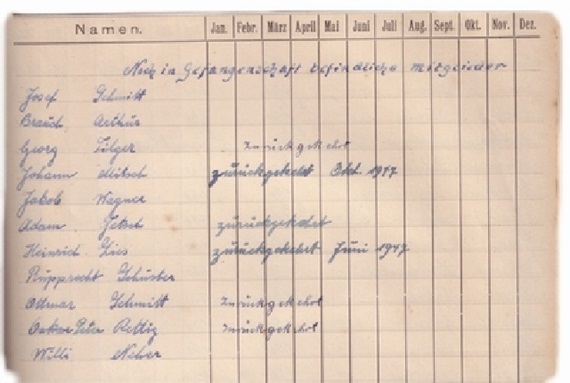 Namen. Jan. Febr. März April Mai Juni Juli Aug. Sept. Okt. Nov. Dez.
Noch in Gefangenschaft befindliche Mitglieder
Josef Schmitt
Brauch Arthur
Georg Filger zurückgekehrt
Johann zurückgekehrt Okt. 1947
Jakob Wagner
Adam zurückgekehrt
Heinrich Zies zurückgekehrt Juni 1947
Rupprecht Schuster
Ottmar Schmitt zurückgekehrt
Oskar Peter Rettig zurückgekehrt
Willi